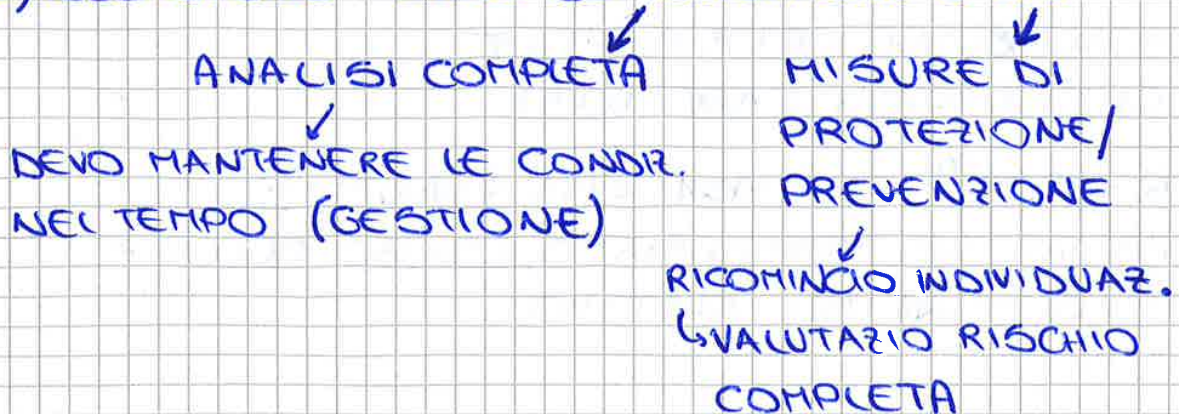 ANALISI COMPLETA
DEVO MANTENERE LE CONDIZ.
NEL TEMPO (GESTIONE)
MISURE DI
PROTEZIONE/
PREVENZIONE
RICOMINCIO INDIVIDUAZ.
↳VALUTAZIO RISCHIO
COMPLETA